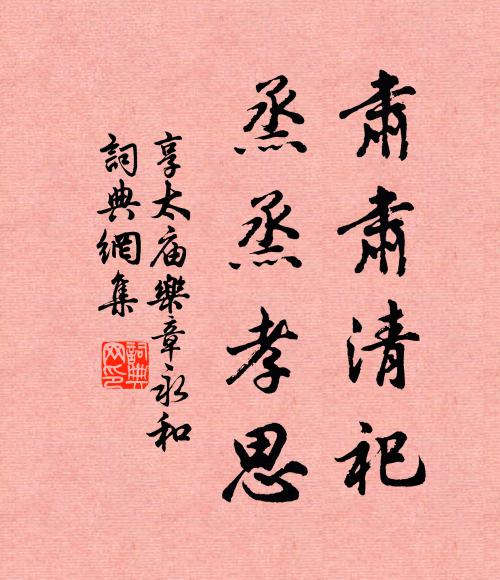 肅肅清祀
烝烝孝思
享太庙樂章永和
詞典網集
詞典
网印